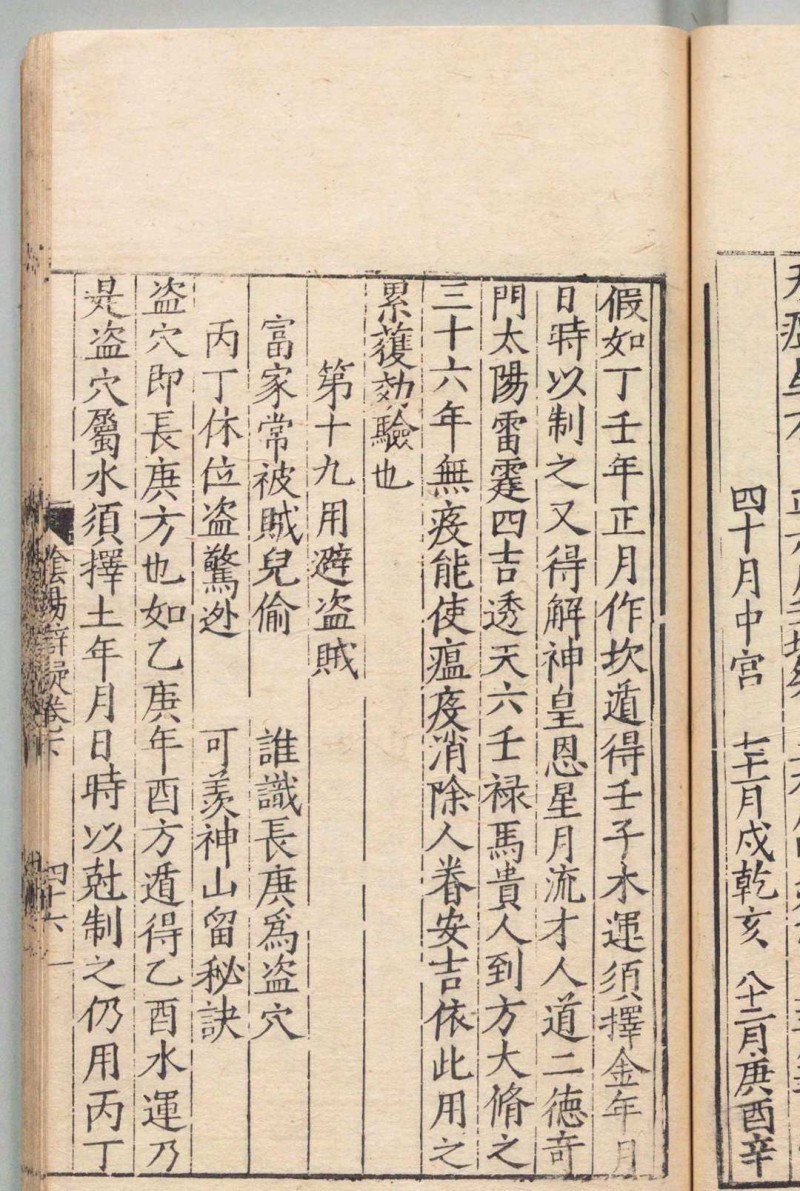 四十月中宮　七十一月戍乾亥　八十二月庚酉辛
假如丁壬年正月作坎遁得壬子木運須擇金年月
日時以制之又得解神皇恩星月流才人道二德奇
門太陽雷霆四吉透天六壬禄馬貴人到方大脩之
三十六年無疫能使瘟疫消除人眷安吉依此用之
累獲効驗也
第十九用避盗賊
富家常被賊兒偷　誰識長庚爲盗穴
丙丁休位盗驚迯　可羨神山留秘訣
盗穴即長庚方也如乙庚年酉方遁得乙酉水運乃
是盗穴屬水須擇土年月日時以尅制之仍用丙丁
陰陽辯疑卷下　四十六